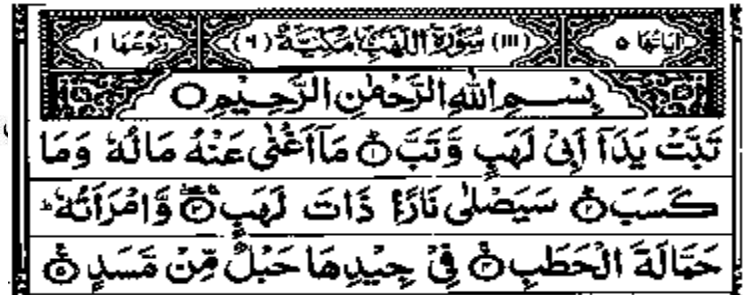 اٰيَاتُهَا ٥ (١١١) سُوْرَةُ اللَّهَبِ مَكِّيَّةٌ (٦) رُكُوْعُهَا ١
بِسْــمِ اللّٰهِ الرَّحْمٰنِ الرَّحِيْمِ ○
تَبَّتْ يَدَآ اَبِيْ لَهَبٍ وَّتَبَّ ۝١ مَآ اَغْنٰى عَنْهُ مَالُهٗ وَمَا
كَسَبَ ۝٢ سَيَصْلٰى نَارًا ذَاتَ لَهَبٍ ۝٣ وَّامْرَاَتُهٗ ؕ
حَمَّالَةَ الْحَطَبِ ۝٤ فِيْ جِيْدِهَا حَبْلٌ مِّنْ مَّسَدٍ ۝٥